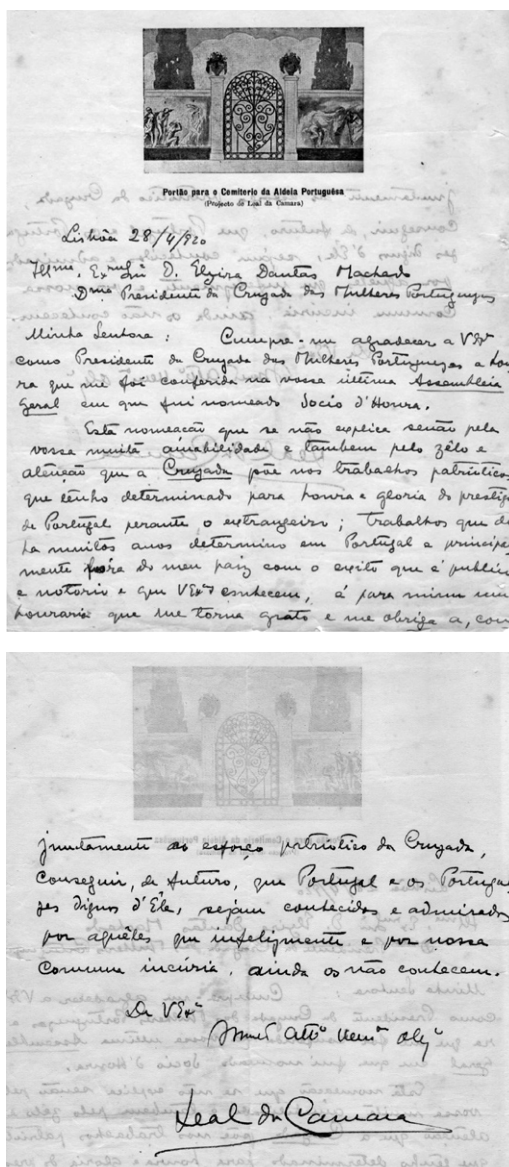 Portão para o Cemiterio da Aldeia Portuguêsa
(Projecto de Leal da Camara)
Lisbôa 28/4/920
Illma. Exma. Sra. D. Elzira Dantas Machado
Dma. Presidente da Cruzada das Mulheres Portuguezas
Minha Senhora : Cumpre-me agradecer a VExa
como Presidente da Cruzada das Mulheres Portuguezas a hon
ra que me foi conferida na vossa ultima Assembleia
Geral em que fui nomeado Socio d'Honra.
Esta nomeação que se não explica senão pela
vossa muita amabilidade e tambem pelo zêlo e
atenção que a Cruzada põe nos trabalhos patrioticos
que tenho determinado para honra e gloria do prestigi
de Portugal perante o extrangeiro ; trabalhos que d
ha muitos anos determino em Portugal e principal
mente fora do meu paiz com o exito que é publico
e notorio e que VExas conhecem, é para mim um
honraria que me torna grato e me obriga a, con
juntamente ao esforço patriotico da Cruzada,
conseguir, de futuro, que Portugal e os Portugue
zes dignos d'Êle, sejam conhecidos e admirados
por aquêles que infelizmente e por nossa
commum incúria, ainda os não conhecem.
De VExa
Atto Venor Obgo
Leal da Camara